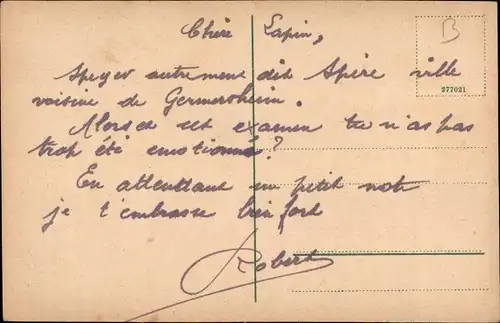 Chère Lapin,
B
277021
Speyer autrement dit Spire ville
voisine de Germersheim.
Alors cet examen tu n'as pas
trop été emotionné?
En attendant un petit mot
je t'embrasse bien fort
Robert